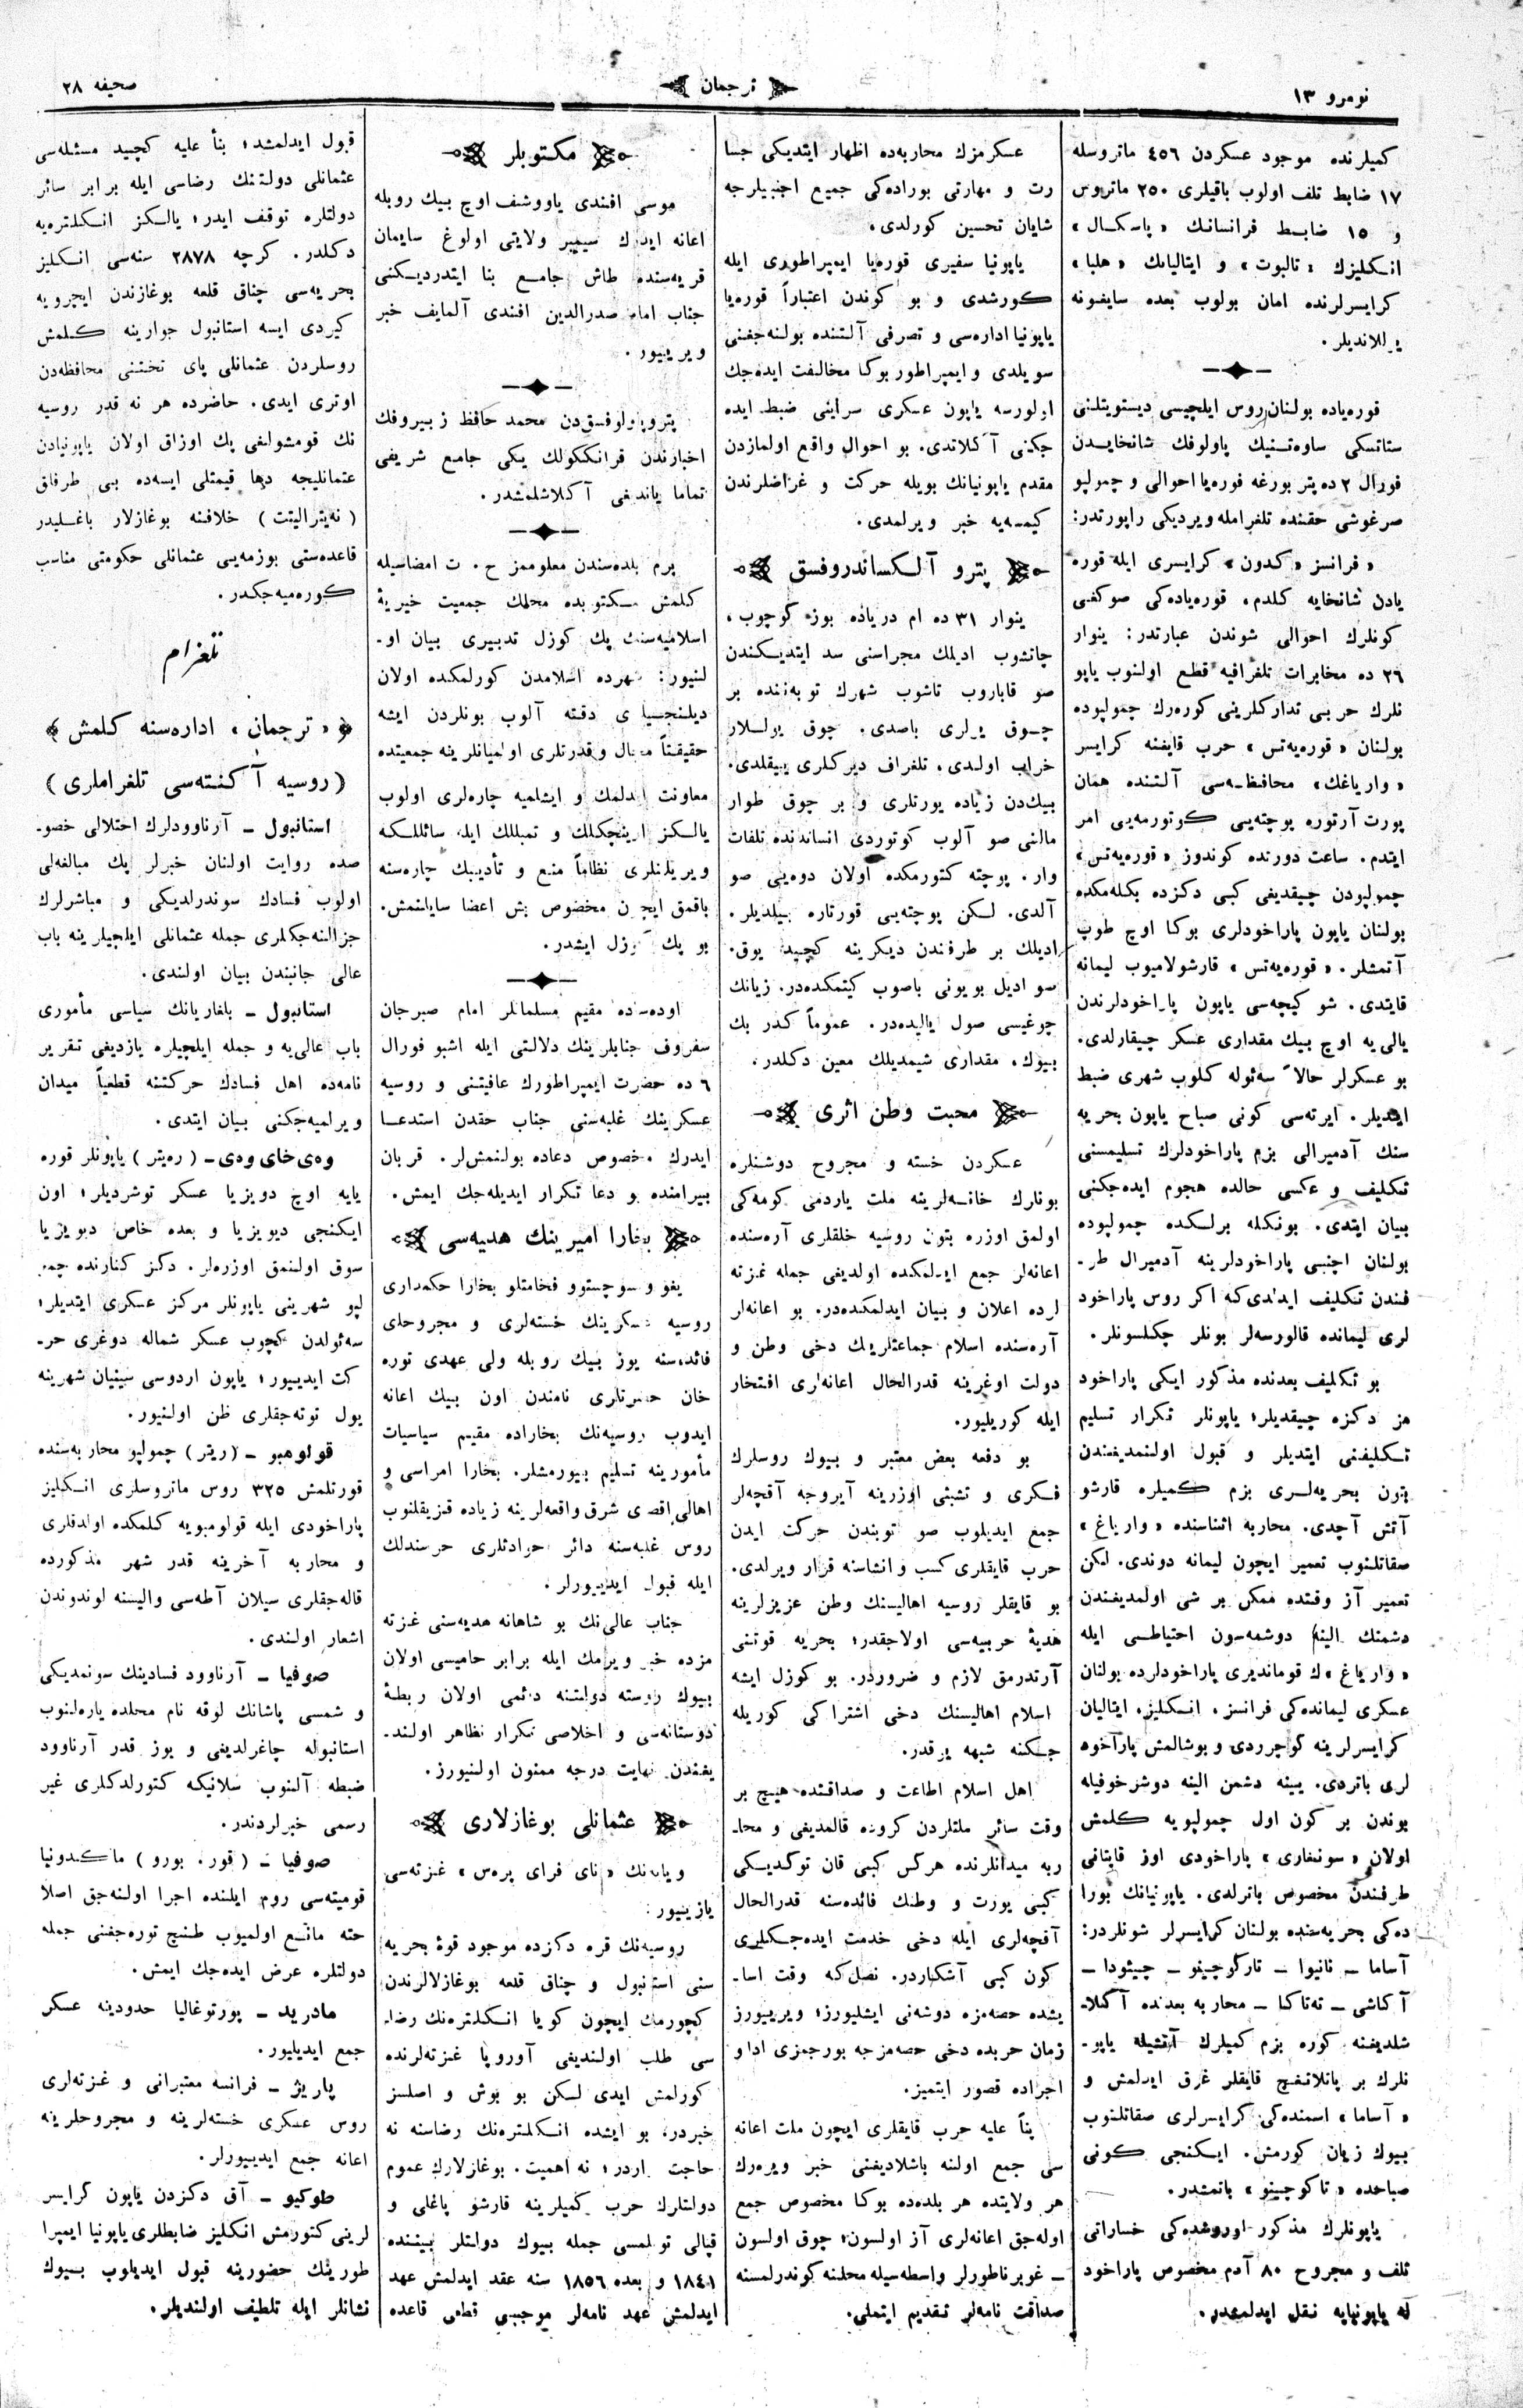 نومرو ١٣
ترجمان
صحیفه ٢٨
كمیلرنده موجود عسكردن ٤٥٦ ماتروسله
١٧ ضابط تلف اولوب باقیلری ٢٥٠ ماتروس
و ١٥ ضابط فرانسانك «پاسكال»
انكلیزك «تالبوت» و ایتالیانك «هلبا»
كرایسرلرنده امان بولوب بعده سایغونه
یوللاندیلر.
قوره‌یاده بولنان روس ایلچیسی دیستویتلنی
ستاتسكی ساوه‌تنیك پاولوفك شانخایدن
فورال ٢ ده پتربورغه قوره‌یا احوالی و چمولپو
صرغوشی حقنده تلغرامله ویردیكی راپورتدر:
«فرانسز «كدون» كرایسری ایله قوره
یادن شانخایه كلدم. قوره‌یاده‌كی صوكغی
كونلرك احوالی شوندن عبارتدر: ینوار
٢٦ ده مخابرات تلغرافیه قطع اولنوب یاپو
نلرك حربی تداركلرینی كوره‌رك چمولپوده
بولنان «قوره‌یه‌تس» حرب قایغنه كرایسر
«واریاغك» محافظه‌سی آلتنده همان
پورت آرتوره پوچته‌یی كوتورمه‌یی امر
ایتدم. ساعت دورنده كوندوز «قوره‌یه‌تس»
چمولپودن چیقدیغی كبی دكزده بكله‌مكده
بولنان یاپون پاراخودلری بوكا اوچ طوپ
آتمشلر. «قوره‌یه‌تس» قارشولامیوب لیمانه
قایتدی. شو كیچه‌سی یاپون پاراخودلرندن
یالی‌یه اوچ بیك مقداری عسكر چیقارلدی.
بو عسكرلر حالاً سه‌ئوله كلوب شهری ضبط
ایتدیلر. ایرته‌سی كونی صباح یاپون بحریه
سنك آدمیرالی بزم پاراخودلرك تسلیمسنی
تكلیف و عكسی حالده هجوم ایده‌جكنی
بیان ایتدی. بونكله برلكده چمولپوده
بولنان اجنبی پاراخودلرینه آدمیرال طر-
فندن تكلیف ایدلدی‌كه اكر روس پاراخود
لری لیمانده قالورسه‌لر بونلر چكلسونلر.
بو تكلیف بعدنده مذكور ایكی پاراخود
مز دكزه چیقدیلر؛ یاپونلر تكرار تسلیم
تكلیفنی ایتدیلر و قبول اولنمدیغندن
بتون بحریه‌لری بزم كمیلره قارشو
آتش آچدی. محاربه اثناسنده «واریاغ»
صقاتلنوب تعمیر ایچون لیمانه دوندی. لكن
تعمیر آز وقتده ممكن بر شی اولمدیغندن
دشمنك الینه دوشمه‌سون احتیاطی ایله
«واریاغ»ك قوماندیری پاراخودلرده بولنان
عسكری لیمانده‌كی فرانسز، انكلیز، ایتالیان
كرایسرلرینه كوچرردی و بوشالمش پاراخود
لری باتردی. یینه دشمن الینه دوشرخوفیله
بوندن بر كون اول چمولپویه كلمش
اولان «سونغاری» پاراخودی اوز قاپتانی
طرفندن مخصوص باترلدی. یاپونیانك بورا
ده‌كی بحریه‌سنده بولنان كرایسرلر شونلردر:
آساما – نانیوا – تاركوچینو – چیئودا –
آكاشی – ته‌تاكا – محاربه بعدنده آكلا-
شلدیغنه كوره بزم كمیلرك آتشیله یاپو-
نلرك بر پاتلاتغیچ قایقلر غرق ایدلمش و
«آساما» اسمنده‌كی كرایسرلری صقاتلنوب
بیوك زیان كورمش. ایكنجی كونی
صباحده «تاكوچینو» باتمشدر.
یاپونلرك مذكور اوروشده‌كی خساراتی
تلف و مجروح ٨٠ آدم مخصوص پاراخود
له یاپونیایه نقل ایدلمشدر.
عسكرمزك محاربه‌ده اظهار ایتدیكی جسا
رت و مهارتی بوراده‌كی جمیع اجنبیلرجه
شایان تحسین كورلدی.
یاپونیا سفیری قوره‌یا ایمپراطوری ایله
كورشدی و بو كوندن اعتباراً قوره‌یا
یاپونیا اداره‌سی و تصرفی آلتنده بولنه‌جغنی
سویلدی و ایمپراطور بوكا مخالفت ایده‌جك
اولورسه یاپون عسكری سراینی ضبط ایده
جكنی آكلاتدی. بو احوال واقع اولمازدن
مقدم یاپونیانك بویله حركت و غراضلرندن
كیمسه‌یه خبر ویرلمدی.
پترو آلكساندروفسق
ینوار ٣١ ده ام دریاده بوز كوچوب،
چانشوب ادیلك مجراسنی سد ایتدیكندن
صو قاباروب تاشوب شهرك توبه‌ننده بر
چوق یرلری باصدی. چوق یوللار
خراب اولدی، تلغراف دیركلری ییقلدی.
بیك‌دن زیاده یورتلری و بر چوق طوار
مالنی صو آلوب كوتوردی انساندنده تلفات
وار. پوچته كتورمكده اولان دوه‌یی صو
آلدی. لكن پوچته‌یی قورتاره بیلدیلر.
ادیلك بر طرفندن دیكرینه كچید یوق.
صو ادیل بویونی باصوب كیتمكده‌در. زیانك
چوغیسی صول یالیده‌در. عموماً كدر بك
بیوك. مقداری شیمدیلك معین دكلدر.
محبت وطن اثری
عسكردن خسته و مجروح دوشنلره
بونارك خانه‌لرینه ملت یاردمی كومه‌كی
اولمق اوزره بتون روسیه خلقلری آره‌سنده
اعانه‌لر جمع ایدلمكده اولدیغی جمله غزته
لرده اعلان و بیان ایدلمكده‌در. بو اعانه‌لر
آره‌سنده اسلام جماعتلرینك دخی وطن و
دولت اوغرینه قدرالحال اعانه‌لری افتخار
ایله كوریلیور.
بو دفعه بعض معتبر و بیوك روسلرك
فكری و تشبثی اوزرینه آیروجه آقچه‌لر
جمع ایدیلوب صو توبندن حركت ایدن
حرب قایقلری كسب و انشاسنه قرار ویرلدی.
بو قایقلر روسیه اهالیسنك وطن عزیزلرینه
هدیهٔ حربیه‌سی اولاجقدر؛ بحریه قوتنی
آرتدرمق لازم و ضروردر. بو كوزل ایشه
اسلام اهالیسنك دخی اشتراكی كوریله
جكنه شبهه یوقدر.
اهل اسلام اطاعت و صداقتده هیچ بر
وقت سائر ملتلردن كروده قالمدیغی و محا-
ربه میدانلرنده هركس كبی قان توكدیكی
كبی یورت و وطنك فائده‌سنه قدرالحال
آقچه‌لری ایله دخی خدمت ایده‌جكلری
كون كبی آشكاردر. نصل‌كه وقت اسا-
یشده حصه‌مزه دوشه‌نی ایشلیورز؛ ویرییورز
زمان حربده دخی حصه‌مزجه بورجمزی ادا و
اجراده قصور ایتمیز.
بناً علیه حرب قایقلری ایچون ملت اعانه
سی جمع اولنه باشلادیغنی خبر ویره‌رك
هر ولایتده هر بلده‌ده بوكا مخصوص جمع
اوله‌جق اعانه‌لری آز اولسون؛ چوق اولسون
– غوبرناطورلر واسطه‌سیله محلنه كوندرلمسنه
صداقت نامه‌لر تقدیم ایتملی.
مكتوبلر
موسی افندی یاووشف اوچ بیك روبله
اعانه ایدرك سیبیر ولایتی اولوغ سایمان
قریه‌سنده طاش جامع بنا ایتدردیكنی
جناب امام صدرالدین افندی آلمایف خبر
ویرییور.
پتروپاولوفسق‌دن محمد حافظ زبیروفك
اخبارندن قرانككولك یكی جامع شریفی
تماما یاندیغی آكلاشلمشدر.
پرم بلده‌سندن معلوممز ح. ت امضاسیله
كلمش مكتوبده محلك جمعیت خیریهٔ
اسلامیه‌سنك پك كوزل تدبیری بیان او-
لنیور: شهرده اسلامدن كورلمكده اولان
دیلنجیلری دقته آلوب بونلردن ایشه
حقیقتاً مجال و قدرتلری اولمیانلرینه جمعیتده
معاونت ایدلمك و ایشلمیه چاره‌لری اولوب
یالكز ارینچكلك و تمبللك ایله سائللكه
ویریلنلری نظاماً منع و تأدیبك چاره‌سنه
باقمق ایچون مخصوص بش اعضا سایلنمش.
بو پك كوزل ایشدر.
اوده‌سه‌ده مقیم مسلمانلر امام صبرجان
سفروف جنابلرینك دلالتی ایله اشبو فورال
٦ ده حضرت ایمپراطورك عافیتنی و روسیه
عسكرینك غلبه‌سنی جناب حقدن استدعا
ایدرك مخصوص دعاده بولنمشلر. قربان
بیرامنده بو دعا تكرار ایدیله‌جك ایمش.
بخارا امیرینك هدیه‌سی
یغو وسوچستوو فخامتلو بخارا حكمداری
روسیه عسكرینك خسته‌لری و مجروحلری
فائده‌سنه یوز بیك روبله ولی عهدی توره
خان حضرتلری نامندن اون بیك اعانه
ایدوب روسیه‌نك بخاراده مقیم سیاسیات
مأمورینه تسلیم بیورمشلر. بخارا امراسی و
اهالی اقصی شرق واقعه‌لرینه زیاده قزیقلنوب
روس غلبه‌سنه دائر حوادثلری خرسندلك
ایله قبول ایدییورلر.
جناب عالی‌نك بو شاهانه هدیه‌سنی غزته
مزده خبر ویرمك ایله برابر حامیسی اولان
بیوك روسیه دولتنه دائمی اولان ربطهٔ
دوستانه‌سی و اخلاصی تكرار تظاهر اولند-
یغندن نهایت درجه ممنون اولنیورز.
عثمانلی بوغازلاری
ویانه‌نك «نای فرای پره‌س» غزته‌سی
یازییور:
روسیه‌نك قره دكزده موجود قوهٔ بحریه
سنی استانبول و چناق قلعه بوغازلالرندن
كچورمك ایچون كویا انكلتره‌نك رضا-
سی طلب اولندیغی آوروپا غزته‌لرنده
كورلمش ایدی لكن بو بوش و اصلسز
خبردر. بو ایشده انكلتره‌نك رضاسنه نه
حاجت واردر؛ نه اهمیت. بوغازلارك عموم
دولتلرك حرب كمیلرینه قارشو باغلی و
قپالی تولمسی جمله بیوك دولتلر بیننده
١٨٤١ و بعده ١٨٥٦ سنه عقد ایدلمش عهد
ایدلمش عهد نامه‌لر موجبی قطعی قاعده
قبول ایدلمشدر؛ بنأ علیه كچید مسئله‌سی
عثمانلی دولتنك رضاسی ایله برابر سائر
دولتلره توقف ایدر؛ یالكز انكلتره‌یه
دكلدر. كرچه ٢٨٧٨ سنه‌سی انكلیز
بحریه‌سی چناق قلعه بوغازندن ایچرویه
كیردی ایسه استانبول جوارینه كلمش
روسلردن عثمانلی پای تختنی محافظه‌دن
اوتری ایدی. حاضرده هر نه قدر روسیه
نك قومشولغی پك اوزاق اولان یاپونیادن
عثمانلیجه دها قیمتلی ایسه‌ده بی طرفلق
(نه‌یترالیتت) خلافنه بوغازلار باغلیدر
قاعده‌سنی بوزمه‌یی عثمانلی حكومتی مناسب
كوره‌میه‌جكدر.
تلغرام
«ترجمان» اداره‌سنه كلمش
(روسیه آكنته‌سی تلغراملری)
استانبول – آرناوودلرك اختلالی خصو-
صده روایت اولنان خبرلر پك مبالغه‌لی
اولوب فسادك سوندرلدیكی و مباشرلرك
جزالنه‌جكلری جمله عثمانلی ایلچیلرینه باب
عالی جانبندن بیان اولندی.
استانبول – بلغاریانك سیاسی مأموری
باب عالی‌یه و جمله ایلچیلره یازدیغی تقریر
نامه‌ده اهل فسادك حركتنه قطعیاً میدان
ویرلمیه‌جكنی بیان ایتدی.
وه‌ی‌خای وه‌ی – (ره‌یتر) یاپونلر قوره
یایه اوچ دویزیا عسكر توشردیلر؛ اون
ایكنجی دیویزیا و بعده خاص دیویزیا
سوق اولنمق اوزره‌لر. دكز كنارنده چمو
لپو شهرینی یاپونلر مركز عسكری ایتدیلر؛
سه‌ئولدن كچوب عسكر شماله دوغری حر-
كت ایدییور؛ یاپون اردوسی سینیان شهرینه
یول توته‌جقلری ظن اولنیور.
قولومبو – (ریتر) چمولپو محاربه‌سنده
قورتلمش ٣٢٥ روس ماتروسلری انكلیز
پاراخودی ایله قولومبویه كلمكده اولدقلری
و محاربه آخرینه قدر شهر مذكورده
قاله‌جقلری سیلان آطه‌سی والیسنه لوندوندن
اشعار اولندی.
صوفیا – آرناوود فسادینك سونمدیكی
و شمسی پاشانك لوقه نام محلده یاره‌لنوب
استانبوله چاغرلدیغی و یوز قدر آرناوود
ضبطه آلنوب سلانیكه كتورلدكلری غیر
رسمی خبرلردندر.
صوفیا – (قور. بورو) ماكدونیا
قومیته‌سی روم ایلنده اجرا اولنه‌جق اصلا
حته مانع اولمیوب طنچ توره‌جغنی جمله
دولتلره عرض ایده‌جك ایمش.
مادرید – پورتوغالیا حدودینه عسكر
جمع ایدیلیور.
پاریژ – فرانسه معتبرانی و غزته‌لری
روس عسكری خسته‌لرینه و مجروحلرینه
اعانه جمع ایدییورلر.
طوكیو – آق دكزدن یاپون كرایسر
لرینی كتورمش انكلیز ضابطلری یاپونیا ایمپرا
طورینك حضورینه قبول ایدیلوب بیوك
نشانلر ایله تلطیف اولندیلر.